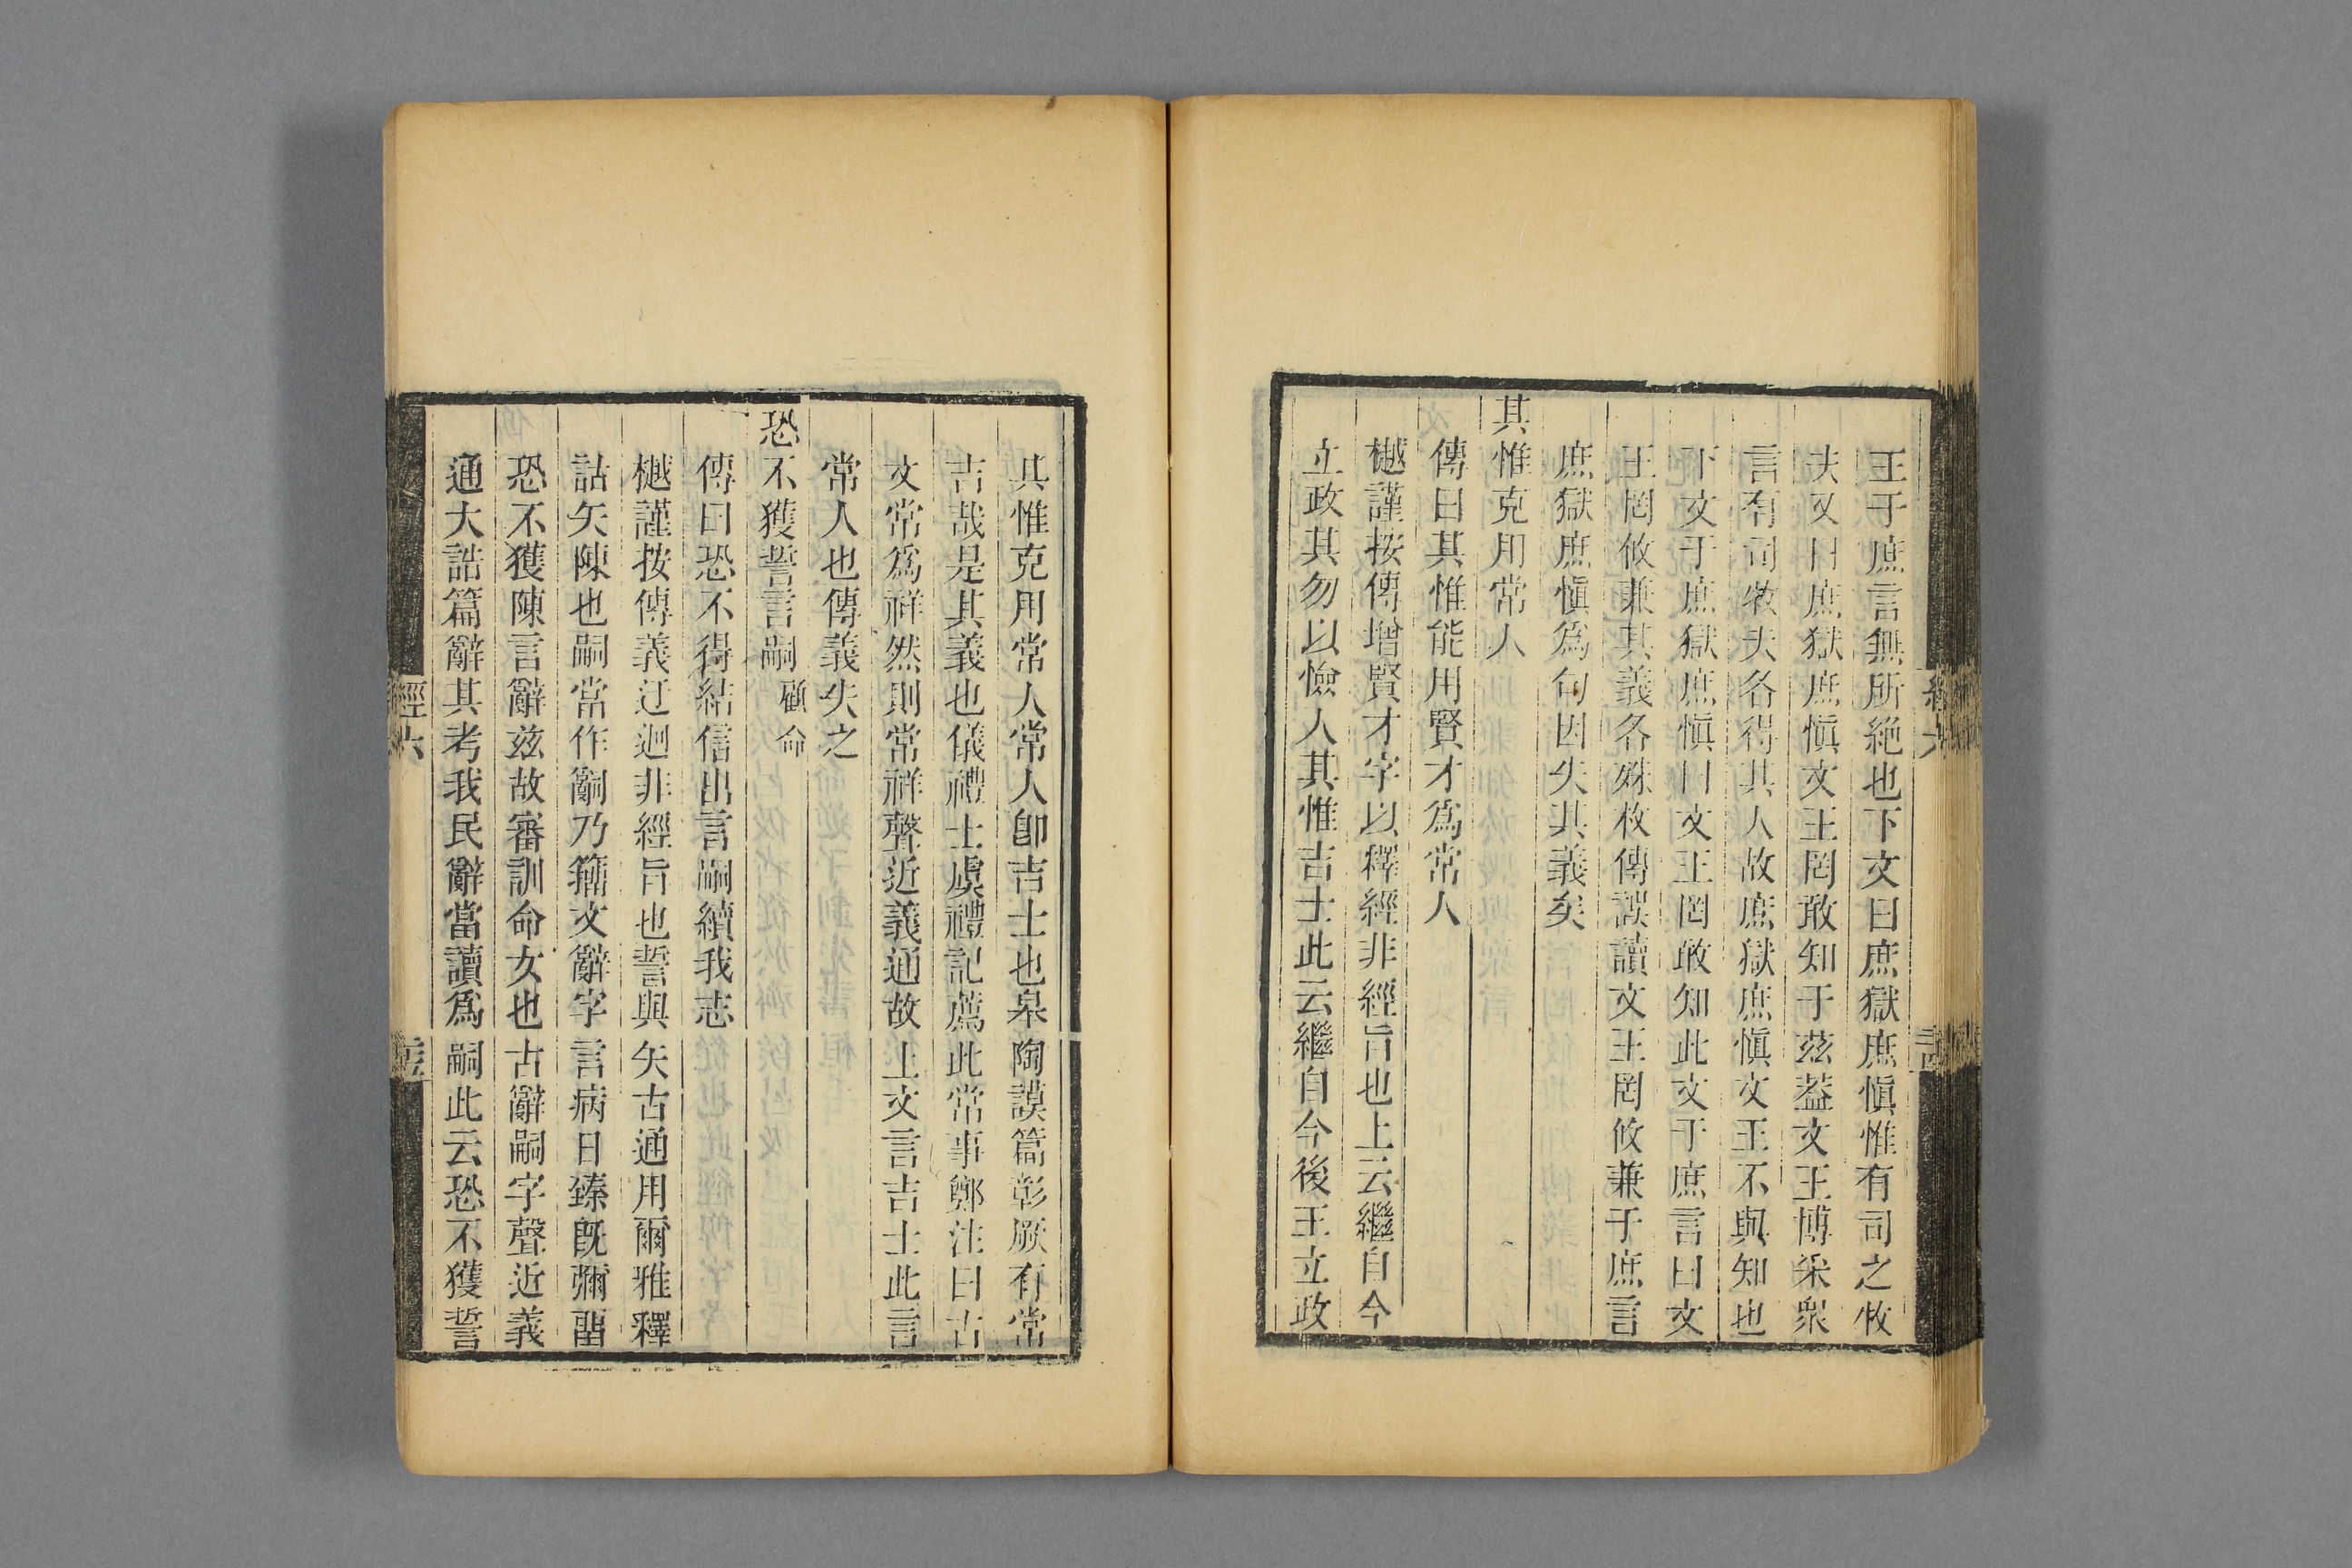 王于庶言無所絶也下文曰庶獄庶愼惟有司之牧
夫又曰庶獄庶愼文王罔敢知于茲葢文王博采衆
言有司牧夫各得其人故庶獄庶愼文王不與知也
下文于庶獄庶愼曰文王罔敢知此文于庶言曰文
王罔攸兼其義各殊枚傳誤讀文王罔攸兼于庶言
庶獄庶愼爲句因失其義矣
其惟克用常人
傳曰其惟能用賢才爲常人
樾謹按傳增賢才字以釋經非經旨也上云繼自今
立政其勿以憸人其惟吉士此云繼自今後王立政
其惟克用常人常人卽吉士也皋陶謨篇彰厥有常
吉哉是其義也儀禮士虞禮記薦此常事鄭注曰古
文常爲祥然則常祥聲近義通故上文言吉士此言
常人也傳義失之
恐不獲誓言嗣 顧命
傳曰恐不得結信出言嗣續我志
樾謹按傳義迂迴非經旨也誓與矢古通用爾雅釋
詁矢陳也嗣當作嗣乃籒文辭字言病日臻旣彌畱
恐不獲陳言辭茲故審訓命女也古辭嗣字聲近義
通大誥篇辭其考我民辭當讀爲嗣此云恐不獲誓
經六